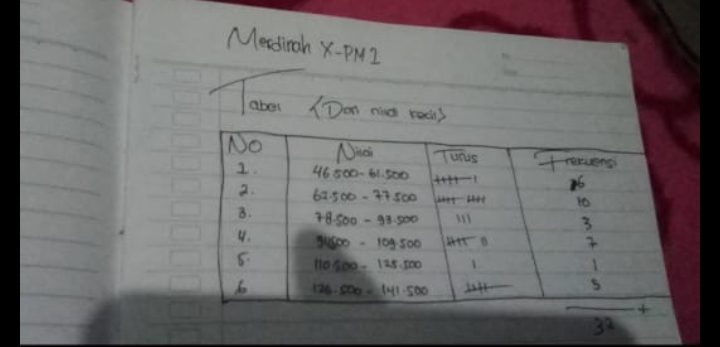 Merdinah X-PM 1
Tabel (Dari nilai kecil)
No Nilai Turus Frekuensi
1. 46.500 - 61.500 卌 I 6
2. 62.500 - 77.500 卌 卌 10
3. 78.500 - 93.500 III 3
4. 94.500 - 109.500 卌 II 7
5. 110.500 - 125.500 I 1
6 126.500 - 141.500 卌 5
+
32